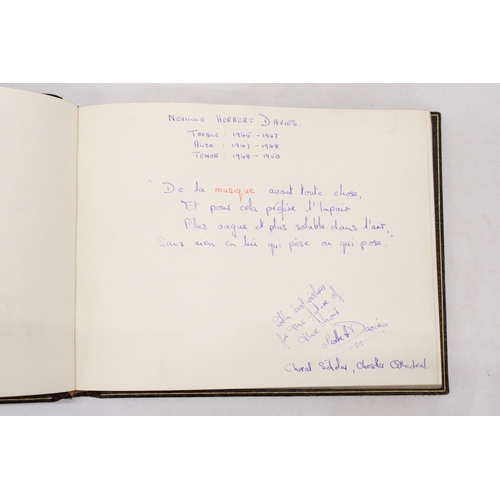 NEVILLE HERBERT DAVIES.
TREBLE : 1945 - 1947
ALTO : 1947 - 1948
TENOR : 1948 - 1950
De la musique avant toute chose,
Et pour cela préfère l'Impair
Plus vague et plus soluble dans l'art,
Sans rien en lui qui pèse ou qui pose.
with best wishes
for the future of
the choir
Davies
Choral Scholar, Chester Cathedral.